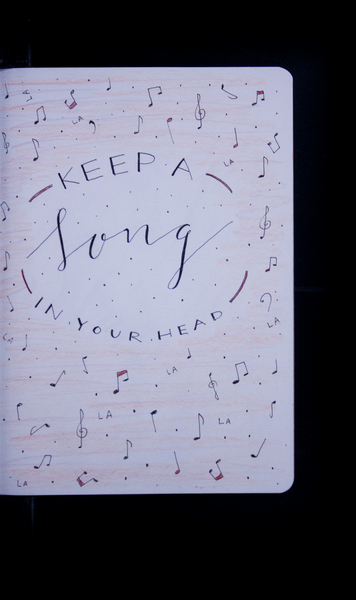 LA
LA
KEEP A
song
IN YOUR HEAD
LA
LA
LA
LA
LA
LA